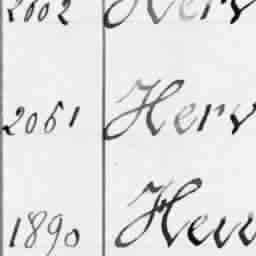 2002 Herv
2061 Herv
1890 Heu